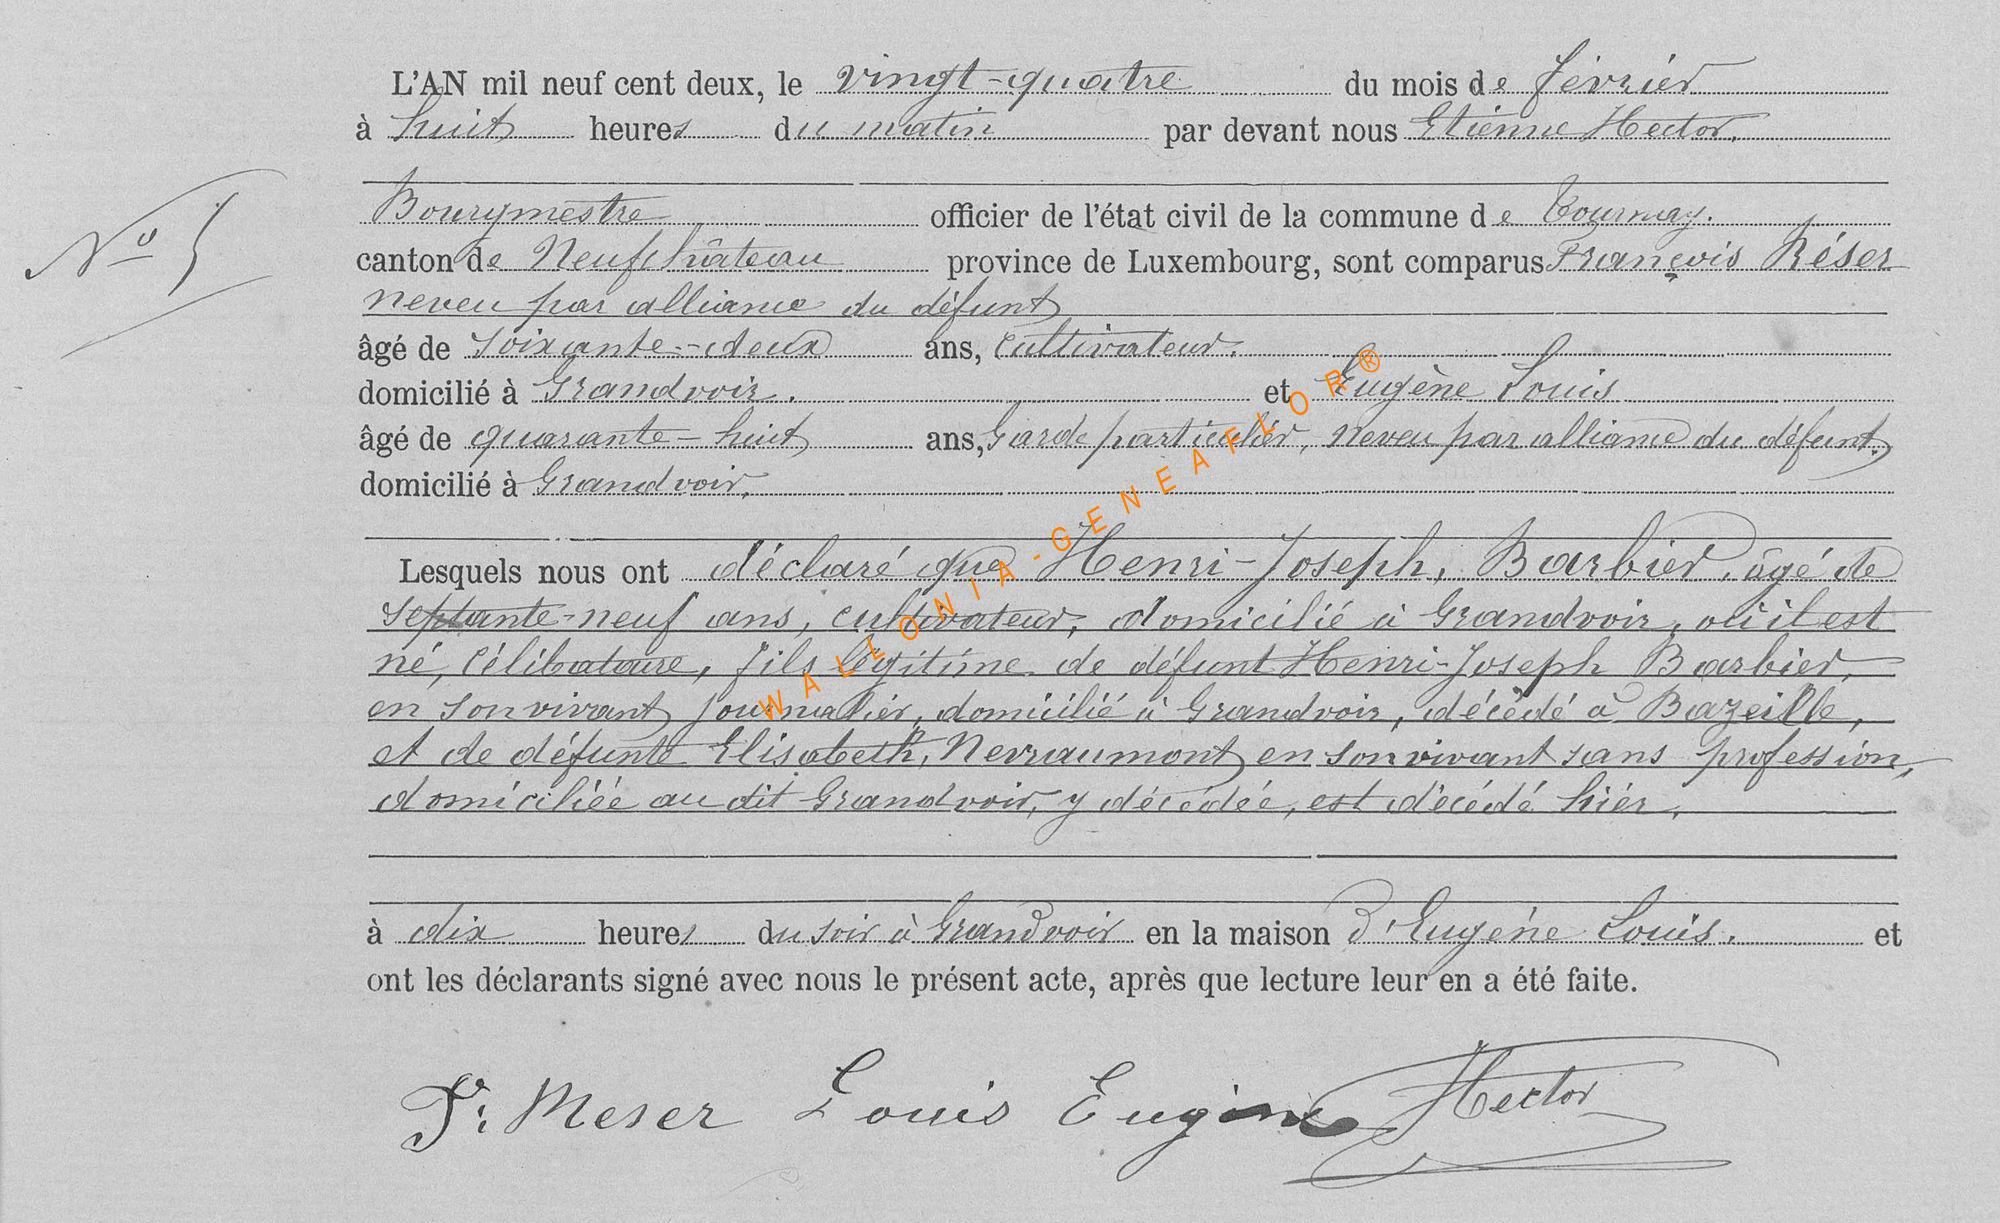 L'AN mil neuf cent deux, le vingt-quatre du mois de février
à huit heures du matin par devant nous Etienne Hector.
Nº 5
Bourgmestre officier de l'état civil de la commune de Tournay.
canton de Neufchâteau province de Luxembourg, sont comparus François Réser
neveu par alliance du défunt
âgé de soixante-deux ans, cultivateur.
domicilié à Grandvoir. et Eugène Louis
âgé de quarante-huit ans, Garde particulier, neveu par alliance du défunt.
domicilié à Grandvoir.
Lesquels nous ont déclaré que Henri-Joseph, Barbier, âgé de
septante-neuf ans, cultivateur, domicilié à Grandvoir, où il est
né, célibataire, fils légitime de défunt Henri-Joseph Barbier,
en son vivant journalier, domicilié à Grandvoir, décédé à Bazeille,
et de défunte Elisabeth, Nevraumont en son vivant sans profession,
domiciliée au dit Grandvoir, y décédée, est décédé hier,
à dix heures du soir à Grandvoir en la maison d'Eugène Louis. et
ont les déclarants signé avec nous le présent acte, après que lecture leur en a été faite.
Meser Louis Eugène Hector
WALLONIA-GENEAFLOR®